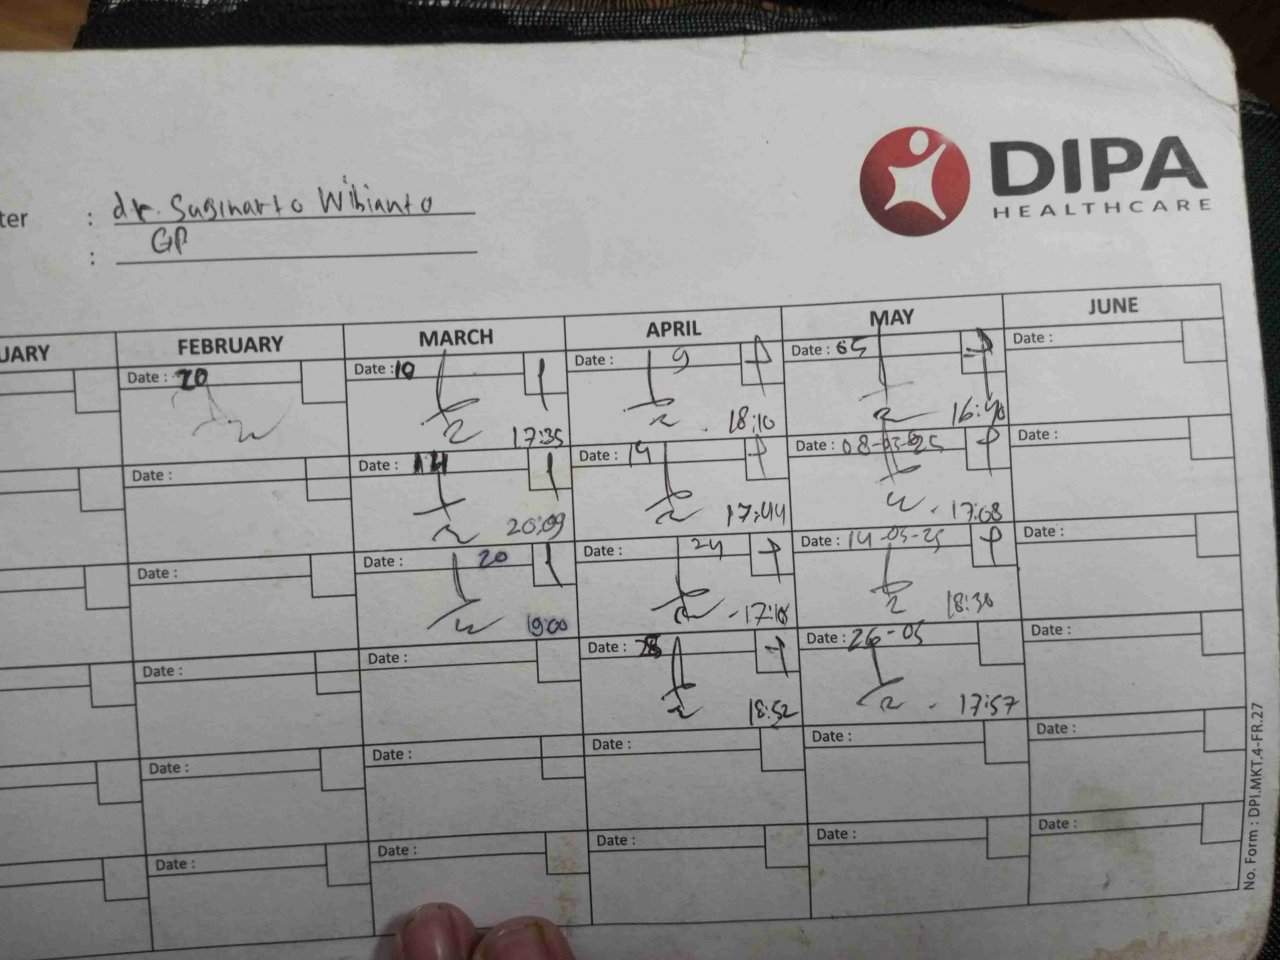 DIPA
HEALTHCARE
ter : dr. Suginarto Wibianto
: GP
UARY FEBRUARY MARCH APRIL MAY JUNE
Date : 20 Date : 10 Date : 9 Date : 05 Date :
17:35 18:10 16:40
Date : Date : 14 Date : 14 Date : 08-05-25 Date :
20:09 17:44 17:08
Date : Date : 20 Date : 24 Date : 14-05-25 Date :
19:00 17:18 18:30
Date : Date : Date : 28 Date : 26-05 Date :
18:52 17:57
Date : Date : Date : Date : Date :
Date : Date : Date : Date : Date :
No. Form : DPI.MKT.4-FR.27